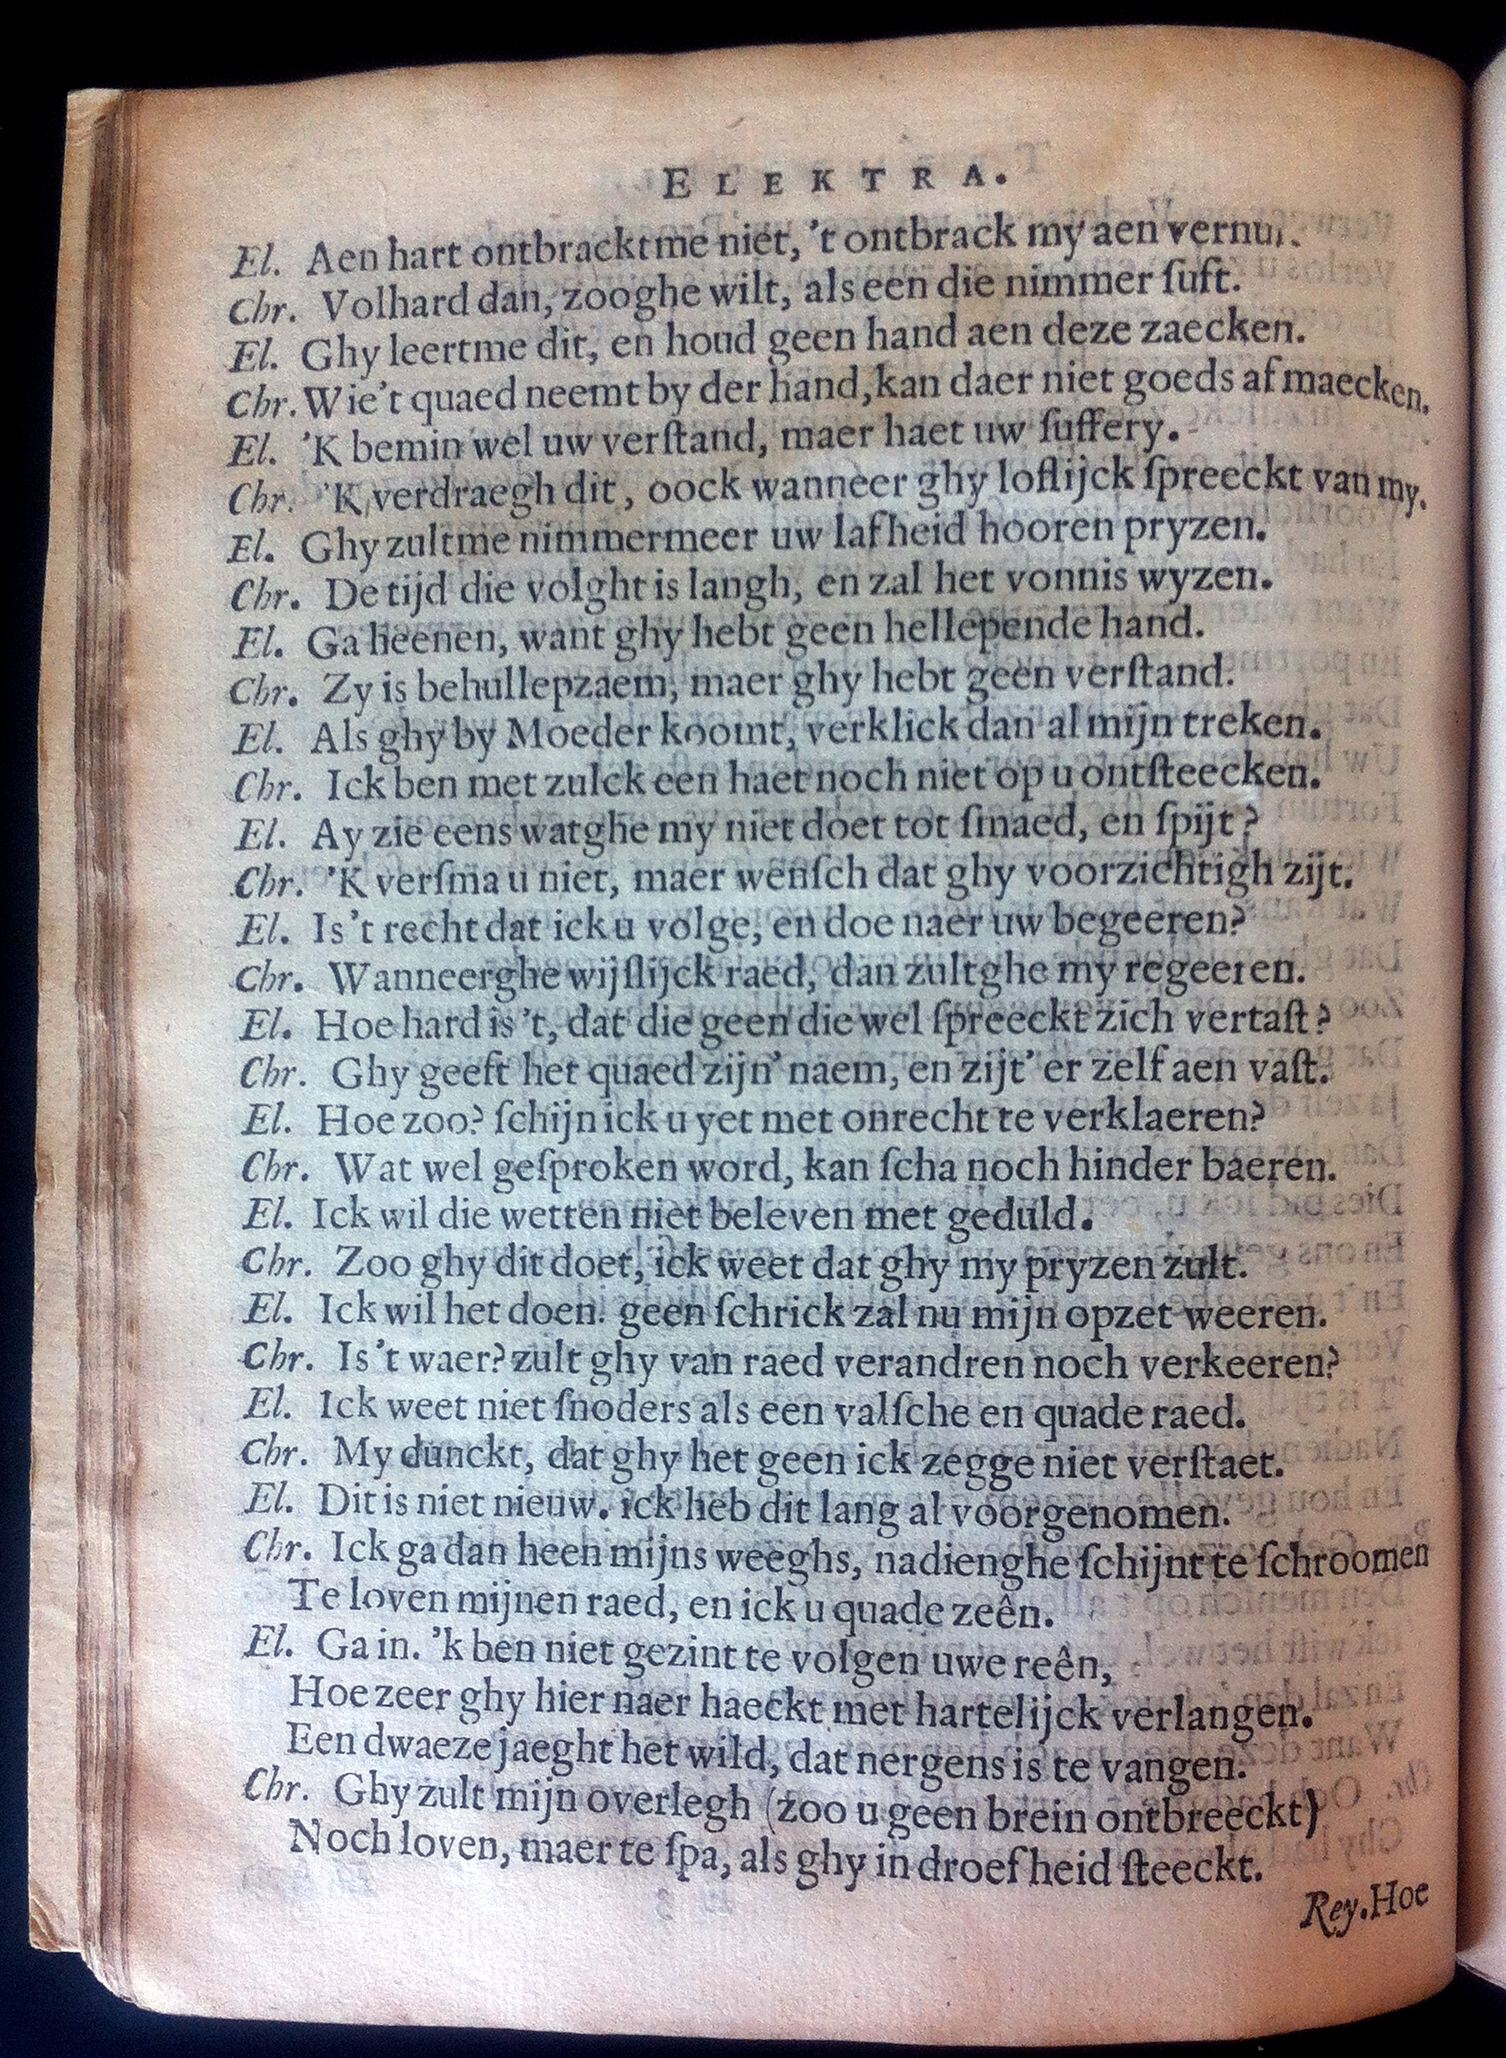 ELEKTRA.
El. Aen hart ontbrackt me niet, 't ontbrack my aen vernuf.
Chr. Volhard dan, zooghe wilt, als een die nimmer ſuft.
El. Ghy leertme dit, en houd geen hand aen deze zaecken.
Chr. Wie't quaed neemt by der hand, kan daer niet goeds af maecken.
El. 'K bemin wel uw verſtand, maer haet uw ſuffery.
Chr. 'K verdraegh dit, oock wanneer ghy loflijck ſpreeckt van my.
El. Ghy zultme nimmermeer uw lafheid hooren pryzen.
Chr. De tijd die volght is langh, en zal het vonnis wyzen.
El. Ga heenen, want ghy hebt geen hellepende hand.
Chr. Zy is behullepzaem, maer ghy hebt geen verſtand.
El. Als ghy by Moeder koomt, verklick dan al mijn treken.
Chr. Ick ben met zulck een haet noch niet op u ontſteecken.
El. Ay zie eens watghe my niet doet tot ſmaed, en ſpijt?
Chr. 'K verſma u niet, maer wenſch dat ghy voorzichtigh zijt.
El. Is't recht dat ick u volge, en doe naer uw begeeren?
Chr. Wanneerghe wijſlijck raed, dan zultghe my regeeren.
El. Hoe hard is 't, dat die geen die wel ſpreeckt zich vertaſt?
Chr. Ghy geeft het quaed zijn' naem, en zijt' er zelf aen vaſt.
El. Hoe zoo? ſchijn ick u yet met onrecht te verklaeren?
Chr. Wat wel geſproken word, kan ſcha noch hinder baeren.
El. Ick wil die wetten niet beleven met geduld.
Chr. Zoo ghy dit doet, ick weet dat ghy my pryzen zult.
El. Ick wil het doen. geen ſchrick zal nu mijn opzet weeren.
Chr. Is't waer? zult ghy van raed verandren noch verkeeren?
El. Ick weet niet ſnoders als een valſche en quade raed.
Chr. My dunckt, dat ghy het geen ick zegge niet verſtaet.
El. Dit is niet nieuw. ick heb dit lang al voorgenomen.
Chr. Ick ga dan heen mijns weeghs, nadienghe ſchijnt te ſchroomen
Te loven mijnen raed, en ick u quade zeên.
El. Ga in. 'k ben niet gezint te volgen uwe reên,
Hoe zeer ghy hier naer haeckt met hartelijck verlangen.
Een dwaeze jaeght het wild, dat nergens is te vangen.
Chr. Ghy zult mijn overlegh (zoo u geen brein ontbreeckt)
Noch loven, maer te ſpa, als ghy in droefheid ſteeckt.
Rey. Hoe